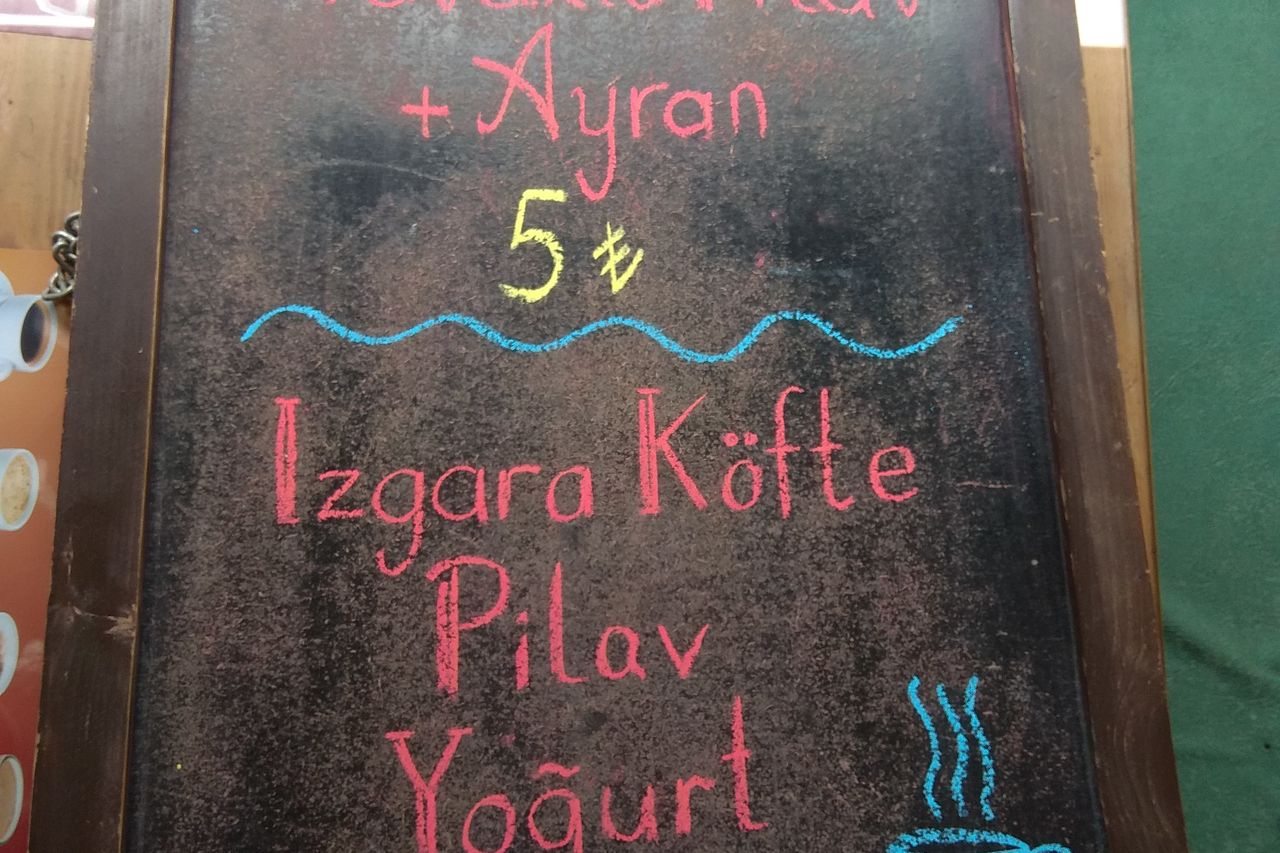 + Ayran
5 ₺
Izgara Köfte
Pilav
Yoğurt